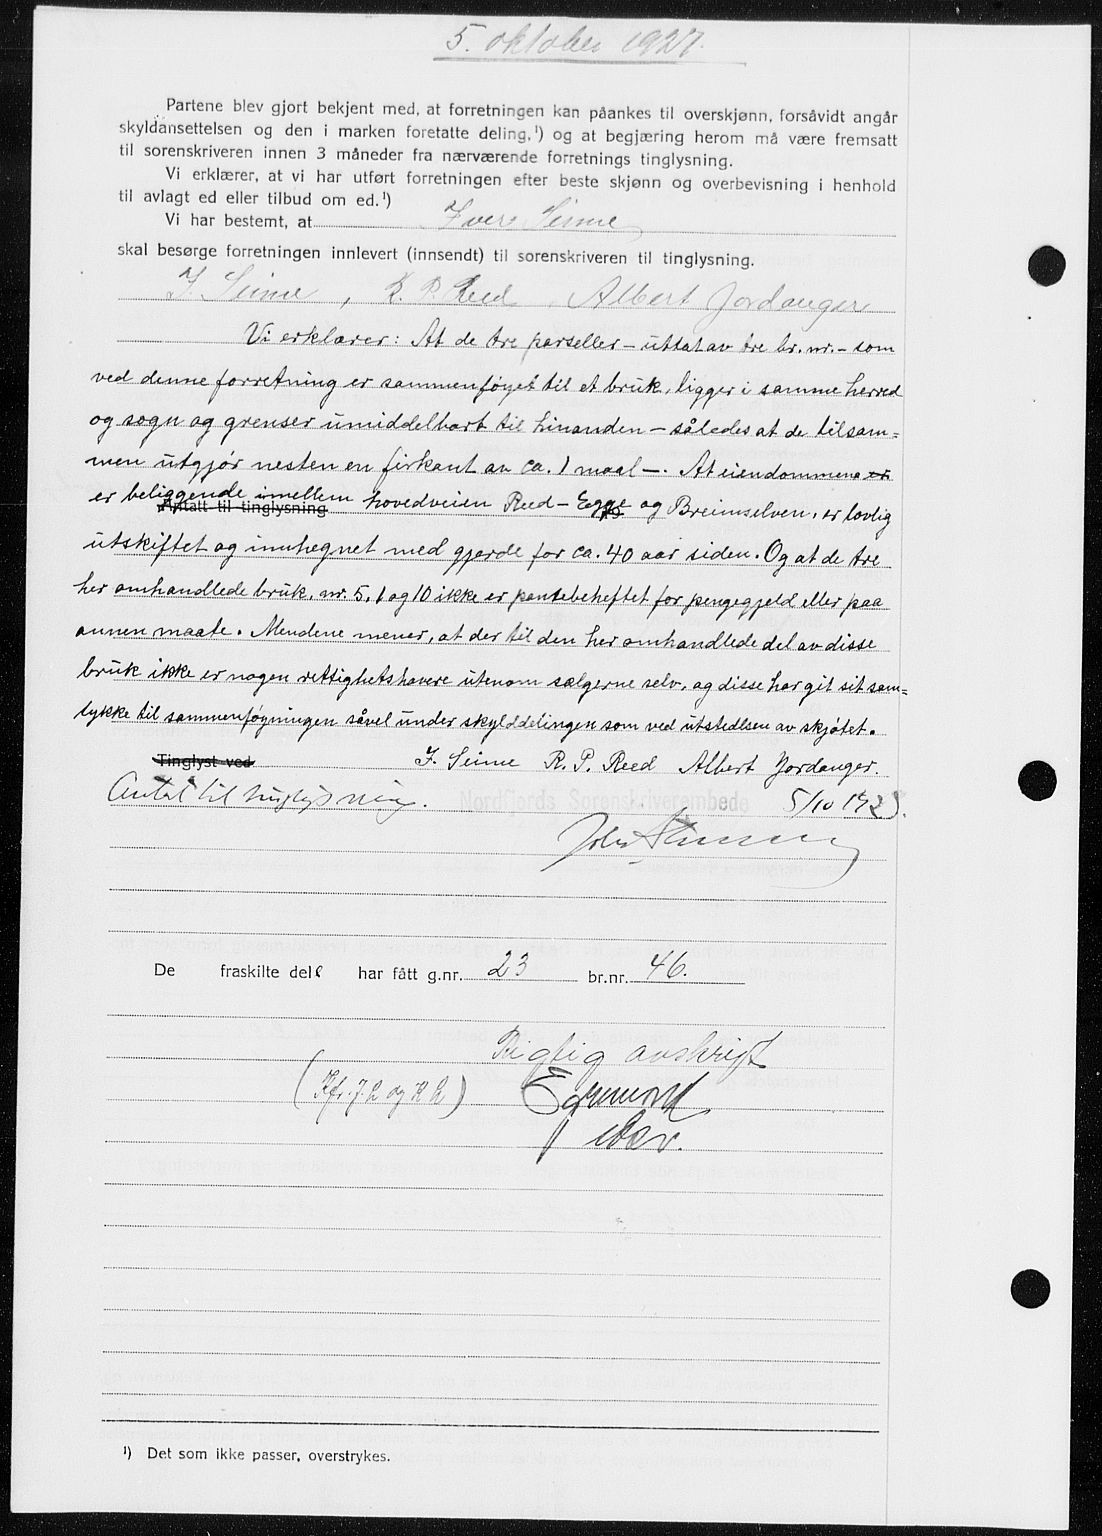 5. oktober 1927.
Partene blev gjort bekjent med, at forretningen kan påankes til overskjønn, forsåvidt angår
skyldansettelsen og den i marken foretatte deling,¹) og at begjæring herom må være fremsatt
til sorenskriveren innen 3 måneder fra nærværende forretnings tinglysning.
Vi erklærer, at vi har utført forretningen efter beste skjønn og overbevisning i henhold
til avlagt ed eller tilbud om ed.¹)
Vi har bestemt, at Iver Seime
skal besørge forretningen innlevert (innsendt) til sorenskriveren til tinglysning.
I. Seime, R. P. Reed Albert Jordanger
Vi erklærer: At de tre parseller – uttat av tre br. nr. – som
ved denne forretning er sammenføyet til et bruk, ligger i samme herred
og sogn og grenser umiddelbart til hinanden – således at de tilsam=
men utgjør nesten en firkant av ca. 1 maal –. At eiendommene
er beliggende imellem hovedveien Reed – Egge og Breimselven, er lovlig
Antatt til tinglysning
utskiftet og innhegnet med gjerde for ca. 40 aar siden. Og at de tre
her omhandlede bruk, nr. 5, 1 og 10 ikke er pantebeheftet for pengegjeld eller paa
annen maate. Mendene mener, at der til den her omhandlede del av disse
bruk ikke er nogen rettighetshavere utenom sælgerne selv, og disse har git sit sam=
tykke til sammenføyningen såvel under skylddelingen som ved utstedlsen av skjøtet.
Tinglyst ved I. Seime R. P. Reed Albert Jordanger.
Antat til tinglysning. Nordfjords Sorenskriverembede 5/10 192
De fraskilte dele har fått g.nr. 23 br.nr. 46.
Rigtig avskrift
(Kfr. J. R og R R)
Egmund
¹) Det som ikke passer, overstrykes.